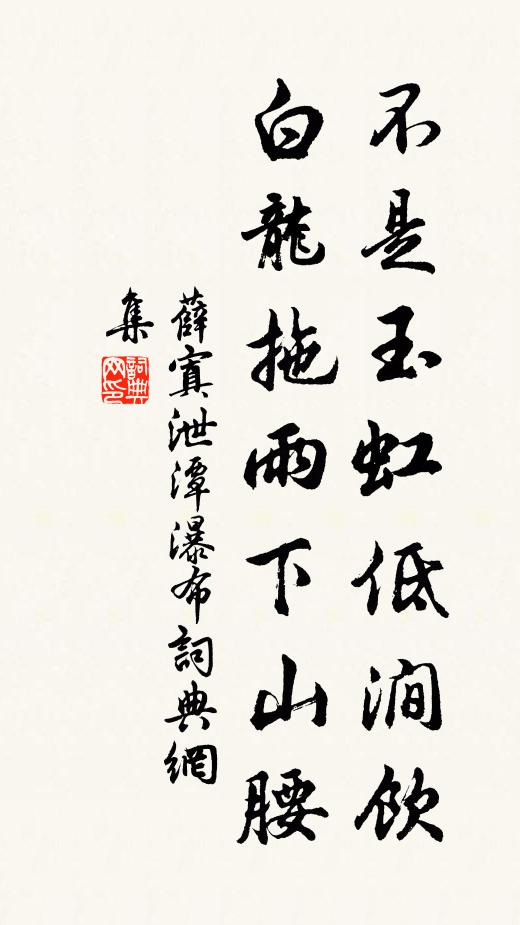 不是玉虹低澗飲
白龍拖雨下山腰
薛寘泄潭瀑布詞典網
集
詞典网印